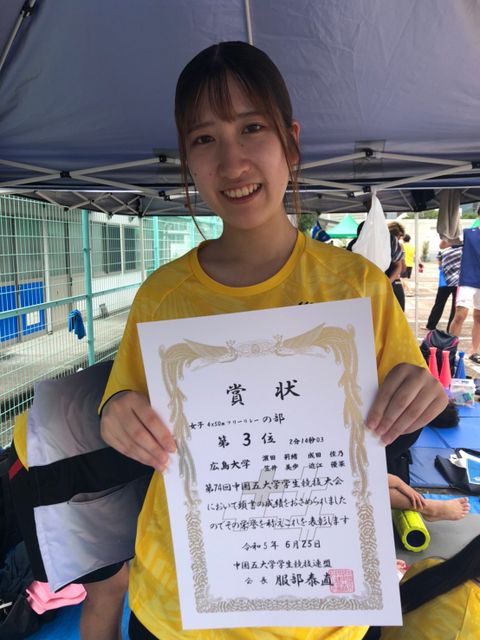 賞状
女子 4×50m フリーリレーの部
第3位 2分14秒03
広島大学 濵田 莉緒 成田 佳乃
笠井 美歩 近江 優菜
第74回中国五大学学生競技大会
において頭書の成績をおさめられました
のでその栄誉を称えこれを表彰します
令和5年 6月25日
中国五大学学生競技連盟
会長 服部泰直